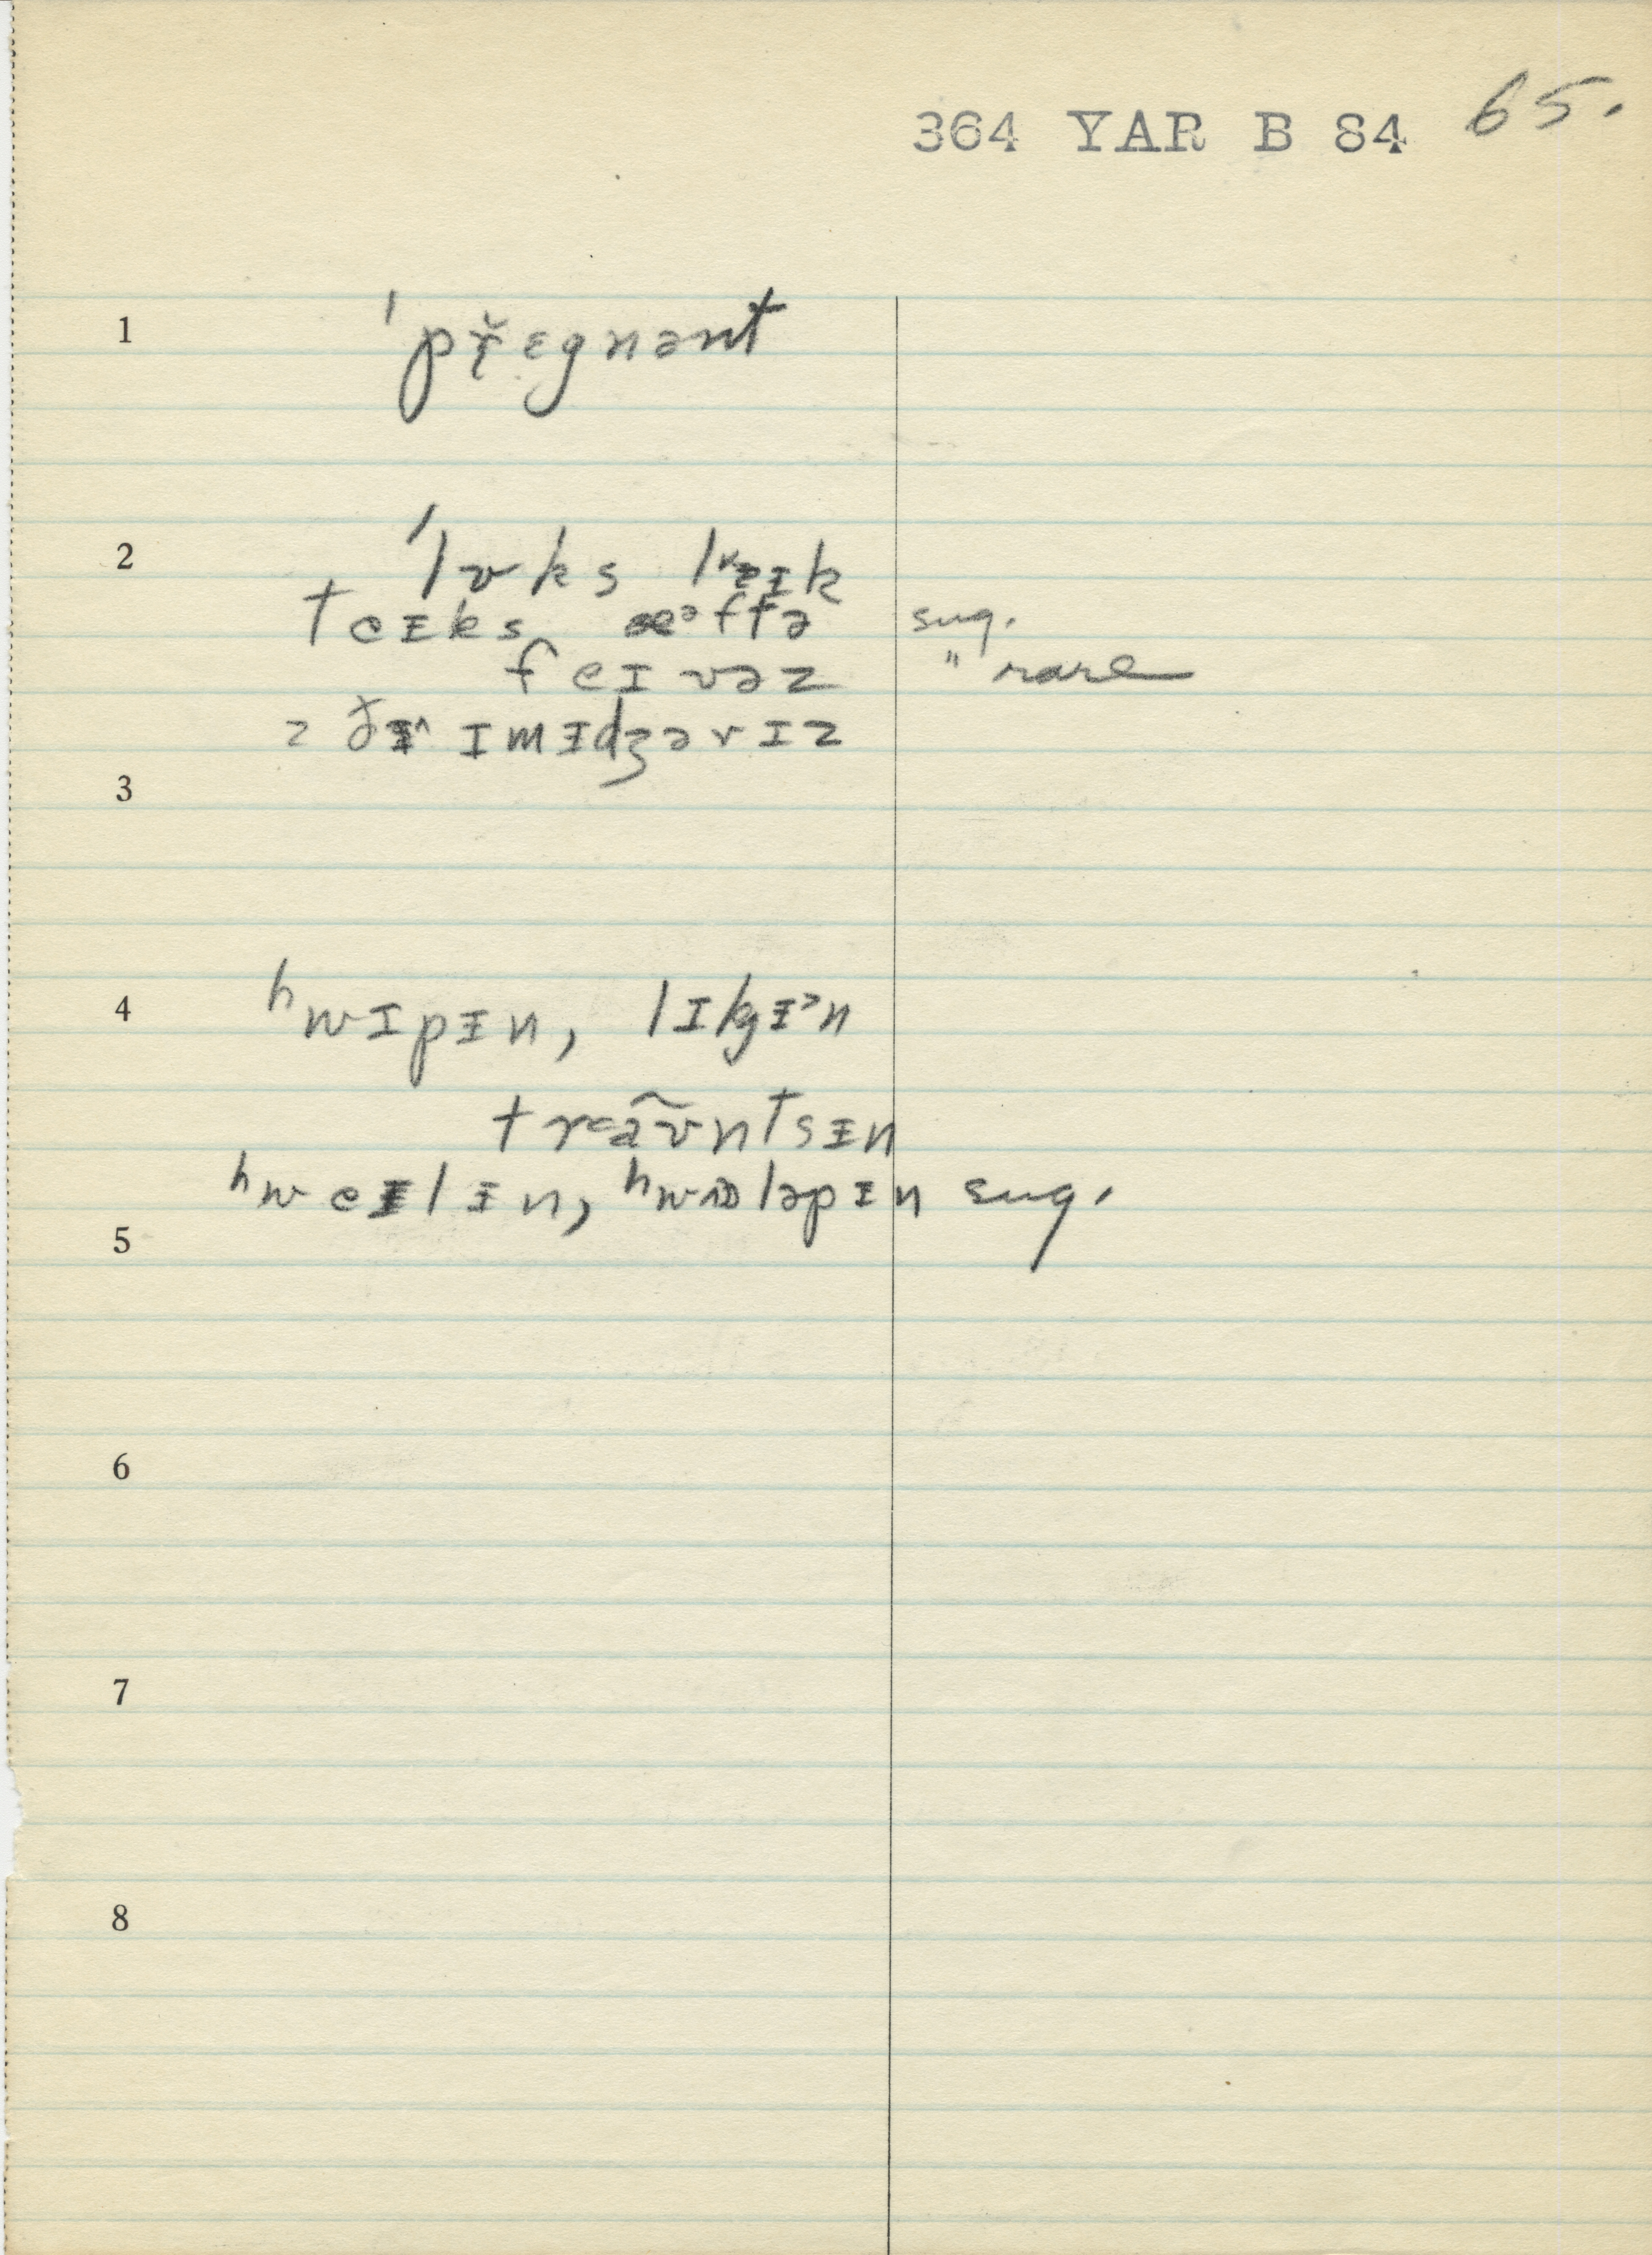 364 YAR B 84 65.
1 ˈpř̥ɛgnənt
2 ˈlʊks lɐɪk
teɨks æᵊftə sug.
feɪvəz " rare
z ðɨ^ ɪmɨdʒərɪz
3
4 ʰwɪpɨn, lɪkɨᵊn
træ̃ʊntsɨn
ʰweɨlɨn, ʰwɒləpɨn sug.
5
6
7
8